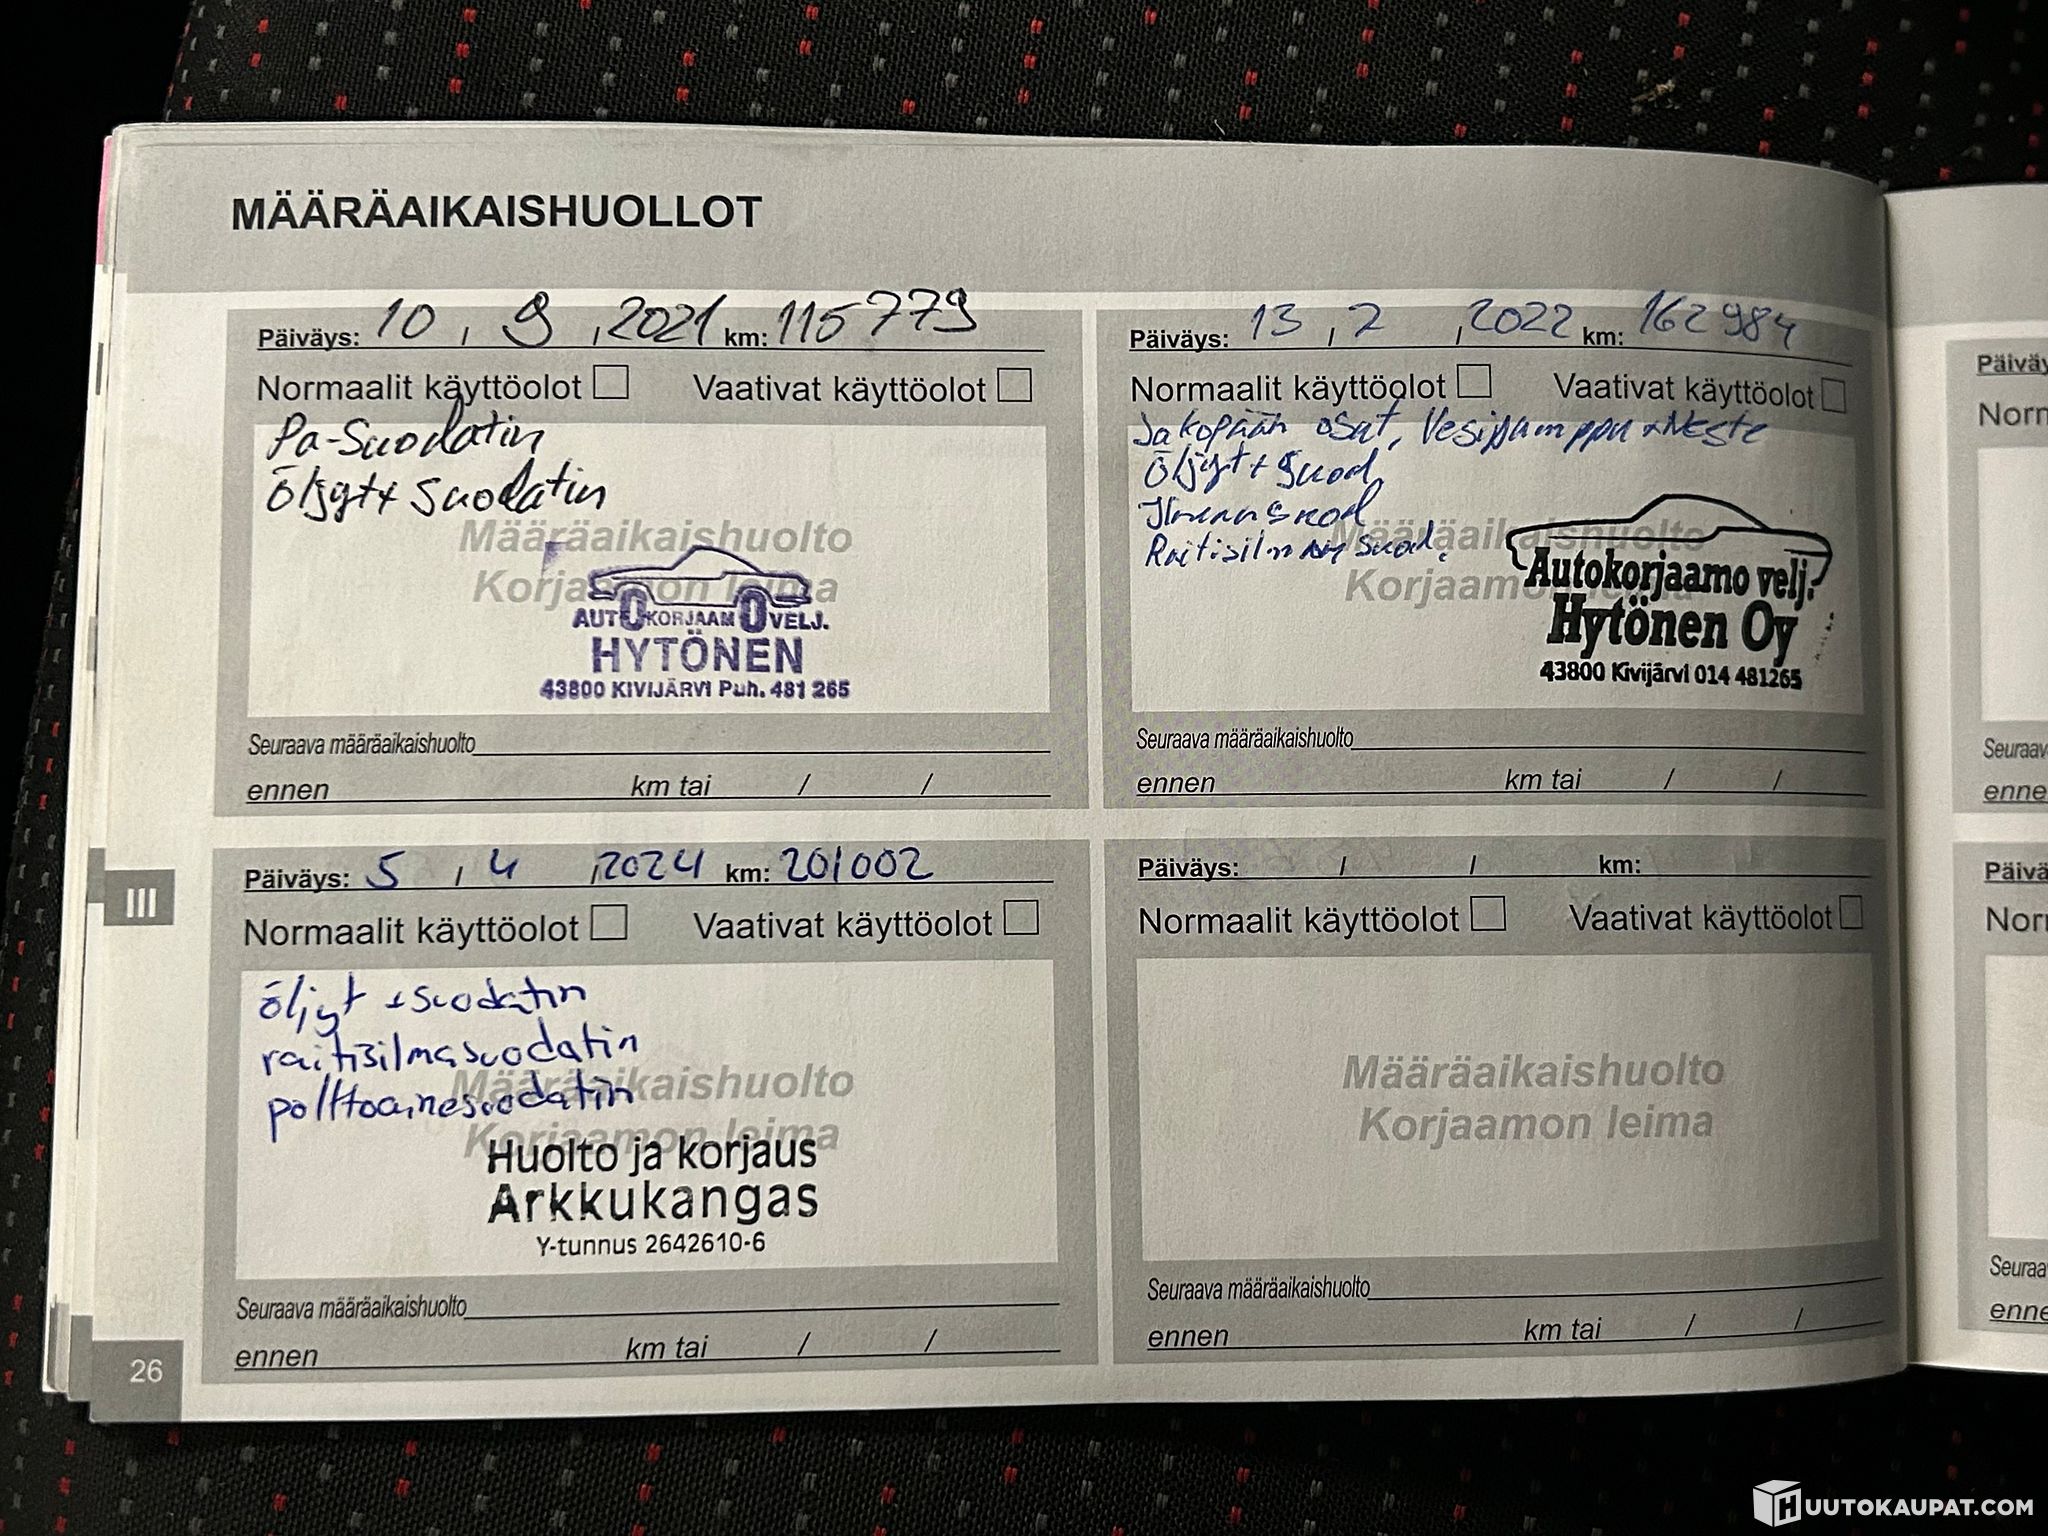 MÄÄRÄAIKAISHUOLLOT
Päiväys: 10 , 9 , 2021 km: 115779
Normaalit käyttöolot Vaativat käyttöolot
Pa-Suodatin
Öljyt+ Suodatin
Määräaikaishuolto
Korjaamon leima
AUTOKORJAAMO VELJ.
HYTÖNEN
43800 KIVIJÄRVI Puh. 481 265
Seuraava määräaikaishuolto
ennen km tai / /
Päiväys: 13 , 2 , 2022 km: 162984
Normaalit käyttöolot Vaativat käyttöolot
Jakopään osat, Vesipumppu + Neste
Öljyt + Suod
Ilmansuod
Raitisilma Suod.
Määräaikaishuolto
Korjaamon leima
Autokorjaamo velj.
Hytönen Oy
43800 Kivijärvi 014 481265
Seuraava määräaikaishuolto
ennen km tai / /
Päiväys: 5 , 4 , 2024 km: 201002
Normaalit käyttöolot Vaativat käyttöolot
öljyt + suodatin
raitisilmasuodatin
polttoainesuodatin
Määräaikaishuolto
Korjaamon leima
Huolto ja korjaus
Arkkukangas
Y-tunnus 2642610-6
Seuraava määräaikaishuolto
ennen km tai / /
Päiväys: / / km:
Normaalit käyttöolot Vaativat käyttöolot
Määräaikaishuolto
Korjaamon leima
Seuraava määräaikaishuolto
ennen km tai / /
III
26
HUUTOKAUPAT.COM